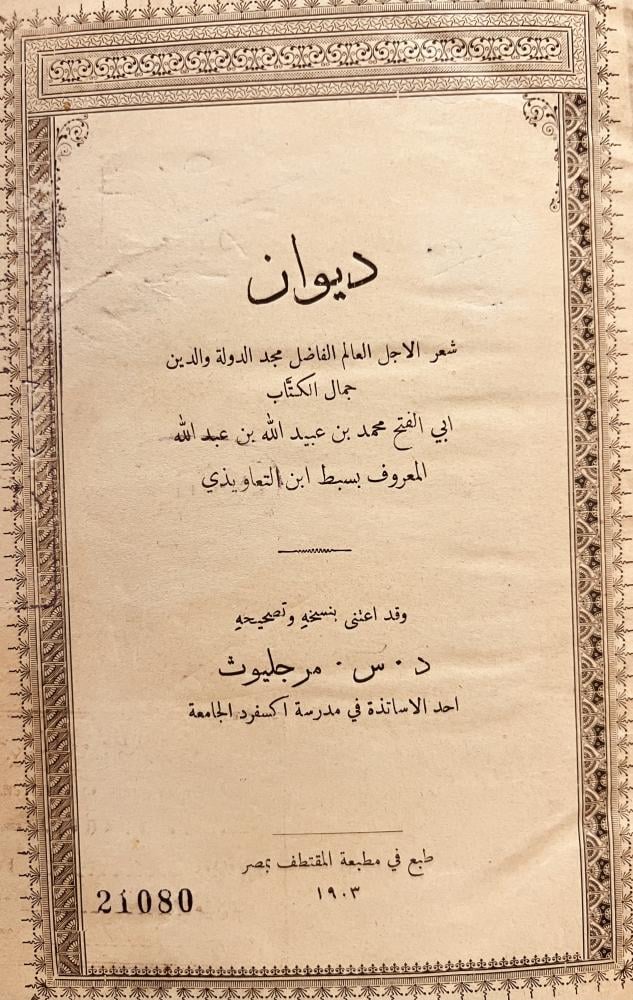 ديوان
شعر الاجل العالم الفاضل مجد الدولة والدين
جمال الكتَّاب
ابي الفتح محمد بن عبيد الله بن عبد الله
المعروف بسبط ابن التعاويذي
وقد اعتنى بنسخهِ وتصحيحهِ
د · س · مرجليوث
احد الاساتذة في مدرسة اكسفرد الجامعة
طبع في مطبعة المقتطف بمصر
١٩٠٣
21080